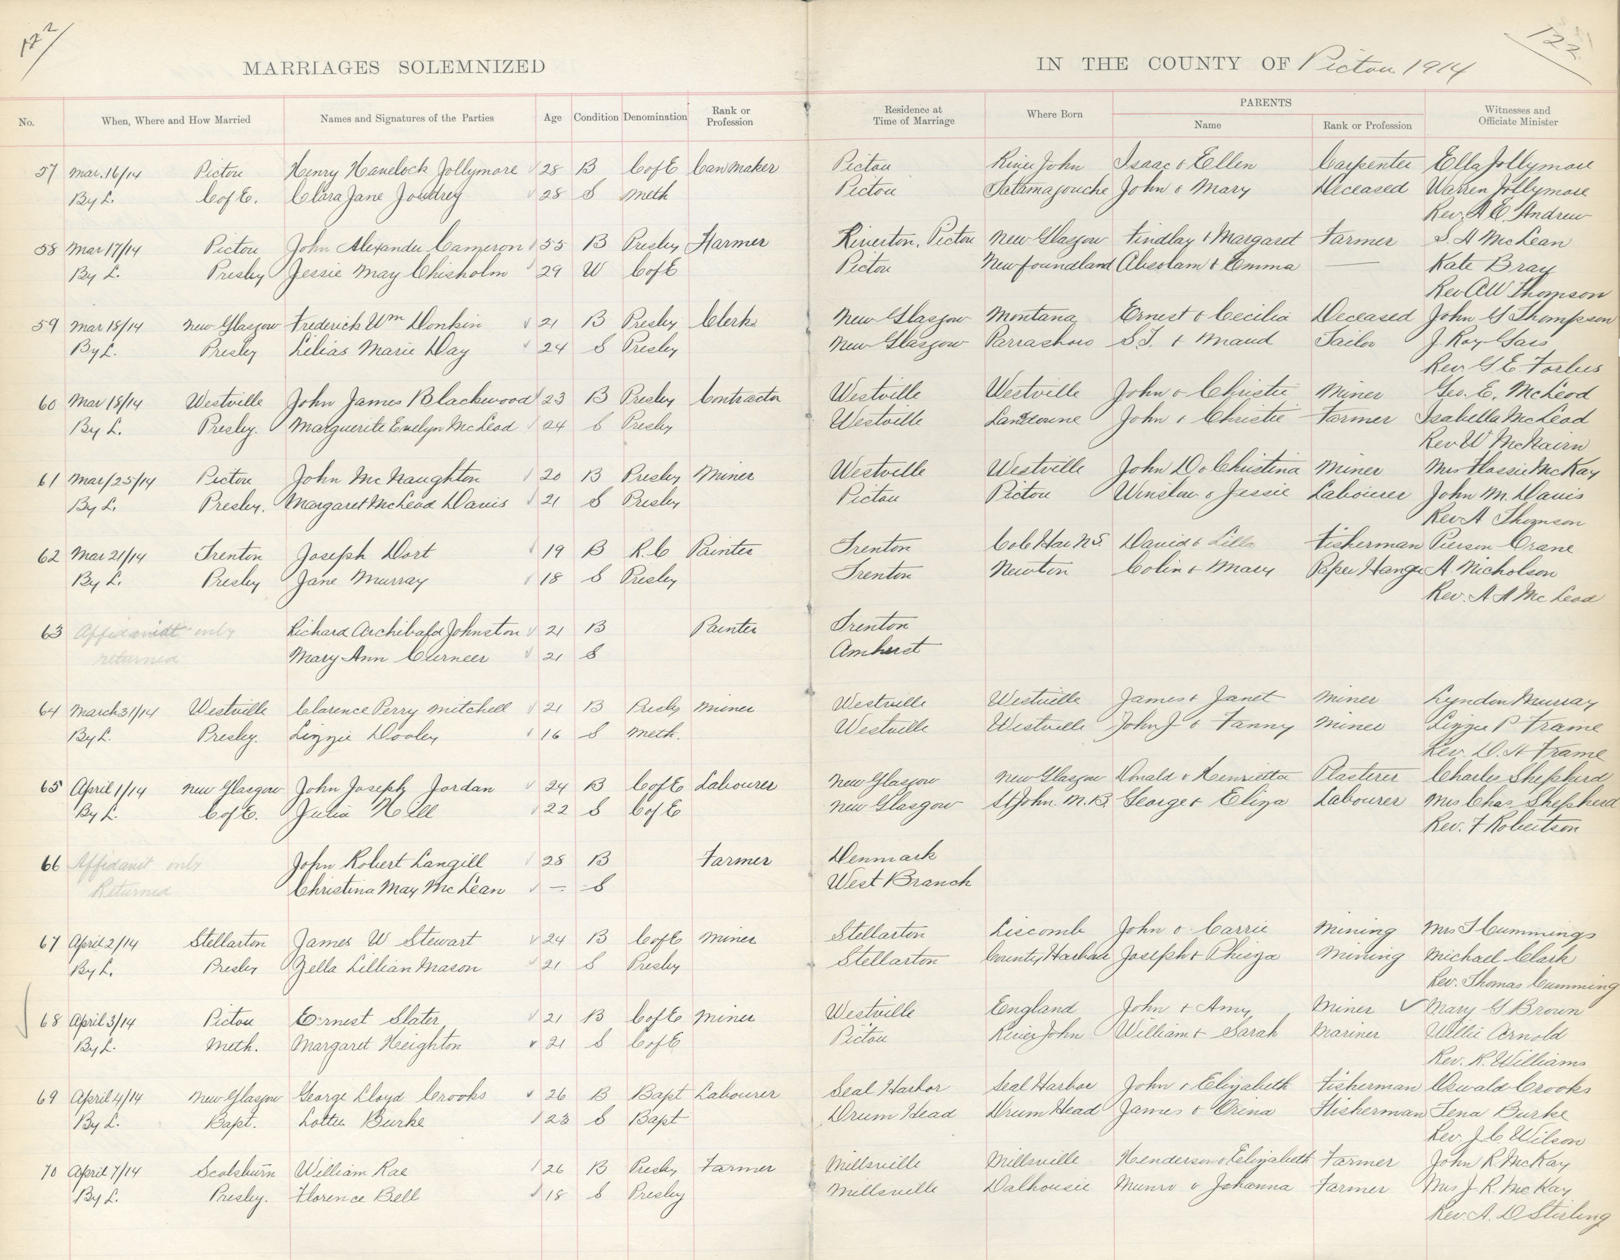 122
122
MARRIAGES SOLEMNIZED
IN THE COUNTY OF Pictou 1914
No. When, Where and How Married Names and Signatures of the Parties Age Condition Denomination Rank or Profession Residence at Time of Marriage Where Born PARENTS Name Rank or Profession Witnesses and Officiate Minister
57 Mar. 16/14 Pictou Henry Havelock Jollymore 28 B C of E Can maker Pictou River John Isaac & Ellen Carpenter Ella Jollymore
By L. C of E. Clara Jane Joudrey 28 S Meth Pictou Tatamagouche John & Mary Deceased Warren Jollymore
Rev. A E Andrew
58 Mar 17/14 Pictou John Alexander Cameron 55 B Presby Farmer Riverton, Pictou New Glasgow Findlay & Margaret Farmer S A McLean
By L. Presby Jessie May Chisholm 29 W C of E Pictou Newfoundland Absolam & Emma — Kate Bray
Rev A W Thompson
59 Mar 18/14 New Glasgow Frederick Wm Donkin 21 B Presby Clerk New Glasgow Montana Ernest & Cecilia Deceased John G Thompson
By L. Presby Lilias Marie Day 24 S Presby New Glasgow Parrsboro S. T. & Maud Tailor J. Roy
Rev. G E Forbes
60 Mar 18/14 Westville John James Blackwood 23 B Presby Contractor Westville Westville John & Christie Miner Geo. E. McLeod
By L. Presby. Marguerite Evelyn McLeod 24 S Presby Westville Lansdowne John & Christie Farmer Isabella McLeod
Rev W McNairn
61 Mar/25/14 Pictou John McNaughton 20 B Presby Miner Westville Westville John D & Christina Miner Mrs Flossie McKay
By L. Presby. Margaret McLeod Davis 21 S Presby Pictou Pictou Winslow & Jessie Labourer John M. Davis
Rev A Thomson
62 Mar 21/14 Trenton Joseph Dort 19 B R. C Painter Trenton Cole Har N S. David & Lilla Fisherman Pierson Crane
By L. Presby Jane Murray 18 S Presby Trenton Newton Colin & Mary Paper Hanger A. Nicholson
Rev. A A McLeod
63 Affidavidt only Richard Archibald Johnston 21 B Painter Trenton
returned Mary Ann Curneer 21 S Amherst
64 March 31/14 Westville Clarence Perry Mitchell 21 B Presby Miner Westville Westville James & Janet Miner Lyndon Murray
By L. Presby. Lizzie Dooley 16 S Meth. Westville Westville John J & Fanny Miner Lizzie P Frame
Rev. D. A Frame
65 April 1/14 New Glasgow John Joseph Jordan 24 B C of E Labourer New Glasgow New Glasgow Donald & Henrietta Plasterer Charlie Shepherd
By L. C of E. Julia Hill 22 S C of E New Glasgow St John. N. B. George & Eliza Labourer Mrs Chas Shepherd
Rev. F Robertson
66 Affidavit only John Robert Langill 28 B Farmer Denmark
Returned Christina May McLean — S West Branch
67 April 2/14 Stellarton James W Stewart 24 B C of E Miner Stellarton Liscomb John & Carrie Mining Mrs T Cummings
By L. Presby Zella Lillian Mason 21 S Presby Stellarton County Harbour Joseph & Phisza Mining Michael Clark
Rev. Thomas Cumming
68 April 3/14 Pictou Ernest Slater 21 B C of E Miner Westville England John & Amy Miner Mary G Brown
By L. Meth. Margaret Heighton 21 S C of E Pictou River John William & Sarah Mariner Willie Arnold
Rev. R. Williams
69 April 4/14 New Glasgow George Lloyd Crooks 26 B Bapt Labourer Seal Harbor Seal Harbor John & Elizabeth Fisherman Oswald Crooks
By L. Bapt. Lottie Burke 23 S Bapt Drum Head Drum Head James & Orina Fisherman Tena Burke
Rev. J. C Wilson
70 April 7/14 Scotsburn William Rae 26 B Presby Farmer Millsville Millsville Henderson & Elizabeth Farmer John R McKay
By L. Presby. Florence Bell 18 S Presby Millsville Dalhousie Munro & Johanna Farmer Mrs J. R. McKay
Rev. A. D Stirling